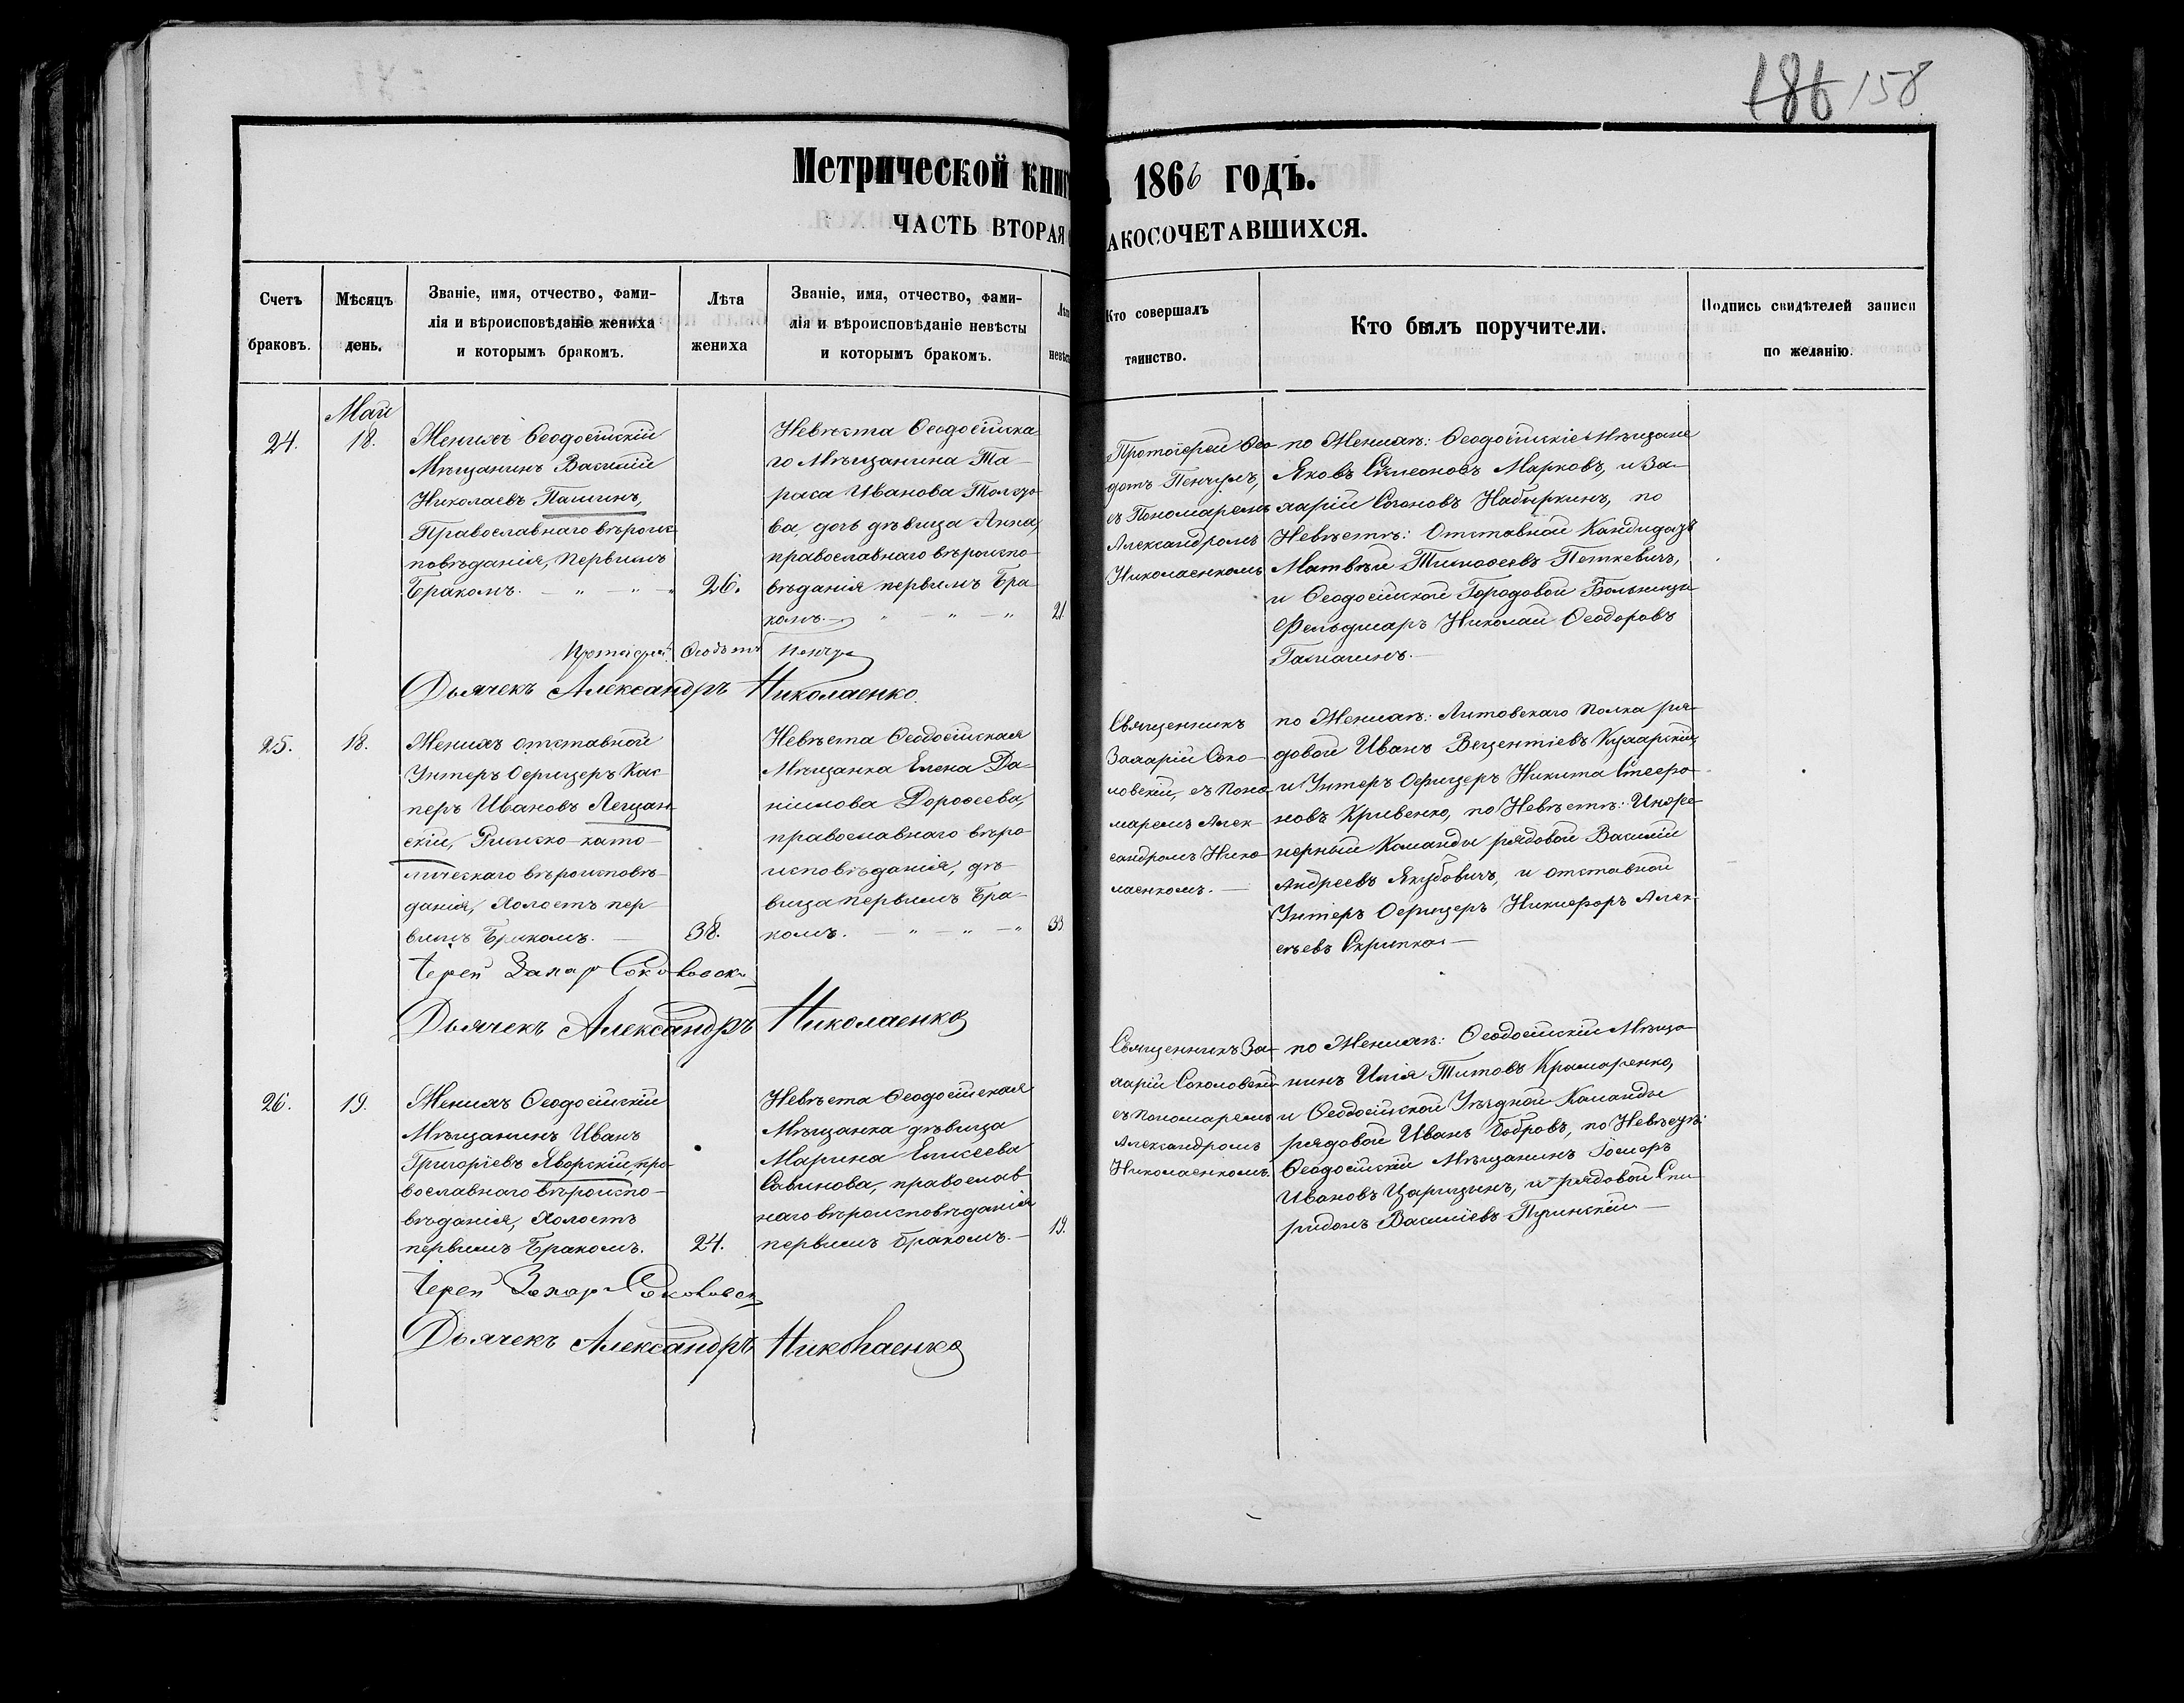 186 158
Метрической книг 1866 годъ.
ЧАСТЬ ВТОРАЯ АКОСОЧЕТАВШИХСЯ.
Счетъ браковъ.
Мѣсяцъ день.
Званіе, имя, отчество, фами-
лія и вѣроисповѣданіе жениха
и которымъ бракомъ.
Лѣта жениха
Званіе, имя, отчество, фами-
лія и вѣроисповѣданіе невѣсты
и которымъ бракомъ.
Кто совершалъ
таинство.
Кто былъ поручители.
Подпись свидѣтелей записи
по желанію.
Май
24.
18.
Женихъ Ѳеодосійскій
Мѣщанинъ Василій
Николаевъ Пашинъ,
Православнаго вѣроис-
повѣданія, Первымъ
Бракомъ.
26.
Невѣста Ѳеодосійска-
го Мѣщанина Та-
раса Иванова
ва, дочь дѣвица Анна,
православнаго вѣроиспо-
вѣданія первымъ Бра-
комъ.
21.
Протоіерей Ѳео-
дотъ Пенчулъ,
съ Пономаремъ
Александромъ
Николаенкомъ
по Женихѣ: Ѳеодосійскіе Мѣщане
Яковъ Симеоновъ Марковъ, и За-
харій Созоновъ Набыркинъ, по
Невѣстѣ: Отставной Кандидатъ
Матвѣй Тимоѳеевъ Петкевичъ,
и Ѳеодосійской Городовой Больницы
Фельдшаръ Николай Ѳеодоровъ
Протоіерей Ѳеодотъ
Дьячекъ Александръ Николаенко.
25.
18.
Женихъ отставной
Унтеръ Офицеръ Кас-
перъ Ивановъ Лещан-
скій, Римско-като-
лическаго вѣроисповѣ-
данія, Холостъ пер-
вымъ Бракомъ.
38.
Невѣста Ѳеодосійская
Мѣщанка Елена Да-
ніилова Дороѳеева,
православнаго вѣро-
исповѣданія, дѣ-
вица первымъ Бра-
комъ.
Священникъ
Захарій Соко-
ловскій, съ Поно-
маремъ Алек-
сандромъ Нико-
лаенкомъ.
по Женихѣ: Литовскаго Полка ря-
довой Иванъ Вецентіевъ
и Унтеръ Офицеръ Никита Стефа-
новъ Кривенко, по Невѣстѣ: Инже-
нерный Команды рядовой Василій
Андреевъ Якубовичъ, и отставной
Унтеръ Офицеръ Никифоръ Алек-
сѣевъ Скрипка
Іерей Захар Соколовски
Дьячекъ Александръ Николаенко
26.
19.
Женихъ Ѳеодосійскій
Мѣщанинъ Иванъ
Григоріевъ Яворскій, пра-
вославнаго вѣроиспо-
вѣданія, Холостъ
первымъ Бракомъ.
24.
Невѣста Ѳеодосійская
Мѣщанка дѣвица
Марина Елисеева
Савинова, православ-
наго вѣроисповѣданія
первымъ бракомъ.
19.
Священникъ За-
харій Соколовскій
съ пономаремъ
Александромъ
Николаенкомъ.
по Женихѣ: Ѳеодосійскій Мѣща-
нинъ Илія Титовъ Крамаренко,
и Ѳеодосійской Уѣздной Команды
рядовой Иванъ Бобровъ, по Невѣстѣ:
Ѳеодосійскій Мѣщанинъ
Ивановъ Царицинъ, и рядовой Спи-
ридонъ Василіевъ
Іерей Захар Соколовск
Дьячекъ Александръ Николаенко